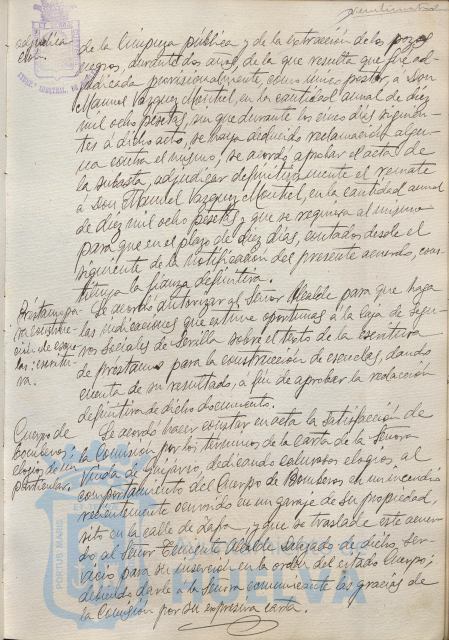 adjudica
de la limpieza pública y de la extracción de los pozos
negros, durante dos años, de la que resulta que fue ad-
judicada provisionalmente, como único postor, a Don
Manuel Vazquez Montiel, en la cantidad anual de diez
mil ocho pesetas, sin que durante los cinco días siguien-
tes á dicho acto, se haya deducido reclamación algu-
na contra el mismo, se acordó aprobar el acta de
la subasta, adjudicar definitivamente el remate
á Don Manuel Vazquez Montiel, en la cantidad anual
de diez mil ocho pesetas y que se requiera al mismo
para que en el plazo de diez días, contados desde el
siguiente de la notificación del presente acuerdo, cons-
tituya la fianza definitiva.
Préstamo pa-
ra construc-
ción de escue-
las: escritu-
ra.
Se acordó autorizar al Señor Alcalde para que haga
las indicaciones que estime oportunas á la Caja de Segu-
ros Sociales de Sevilla sobre el texto de la escritura
de préstamo para la construcción de escuelas, dando
cuenta de su resultado, á fin de aprobar la redacción
definitiva de dicho documento.
Cuerpo de
bomberos:
elogios de un
particular.
Se acordó hacer constar en acta la satisfacción de
la Comisión por los términos de la carta de la Señora
Viuda de dedicando calurosos elogios al
comportamiento del Cuerpo de Bomberos en un incendio
recientemente ocurrido en un garaje de su propiedad,
sito en la calle de y que se traslade este acuer-
do al Señor Teniente Alcalde Delegado de dicho Ser-
vicio para su inserción en la orden del citado Cuerpo;
debiendo darle á la Señora comunicante las gracias de
la Comisión por su expresiva carta.
PORTUS MARIS